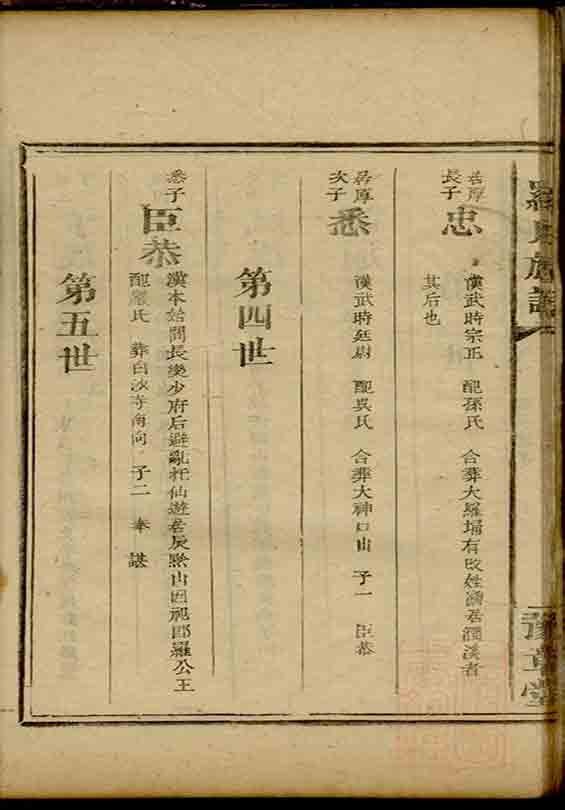 羅氏族譜
豫章堂
君厚長子
忠
漢武時宗正 配孫氏 合葬大羅埔有改姓潘居潤溪者
其后也
君厚次子
悉
漢武時廷尉 配吳氏 合葬大神口山 子一 臣恭
第四世
悉子
臣恭
漢本始間長樂少府后避亂托仙遊居辰㸃山因祀耶羅公王
配嚴氏 葬白沙寺角向 子二 奉 諶
第五世